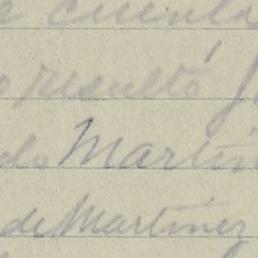 e cuenta
o resultó
do Martín
de Martinez